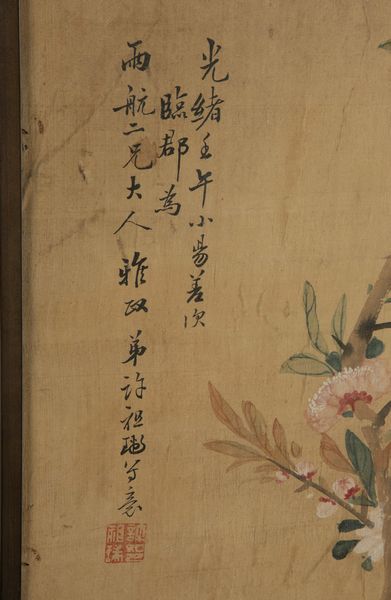 光緒壬午小陽善次
臨郡為
雨航二兄大人 雅政 弟許祖